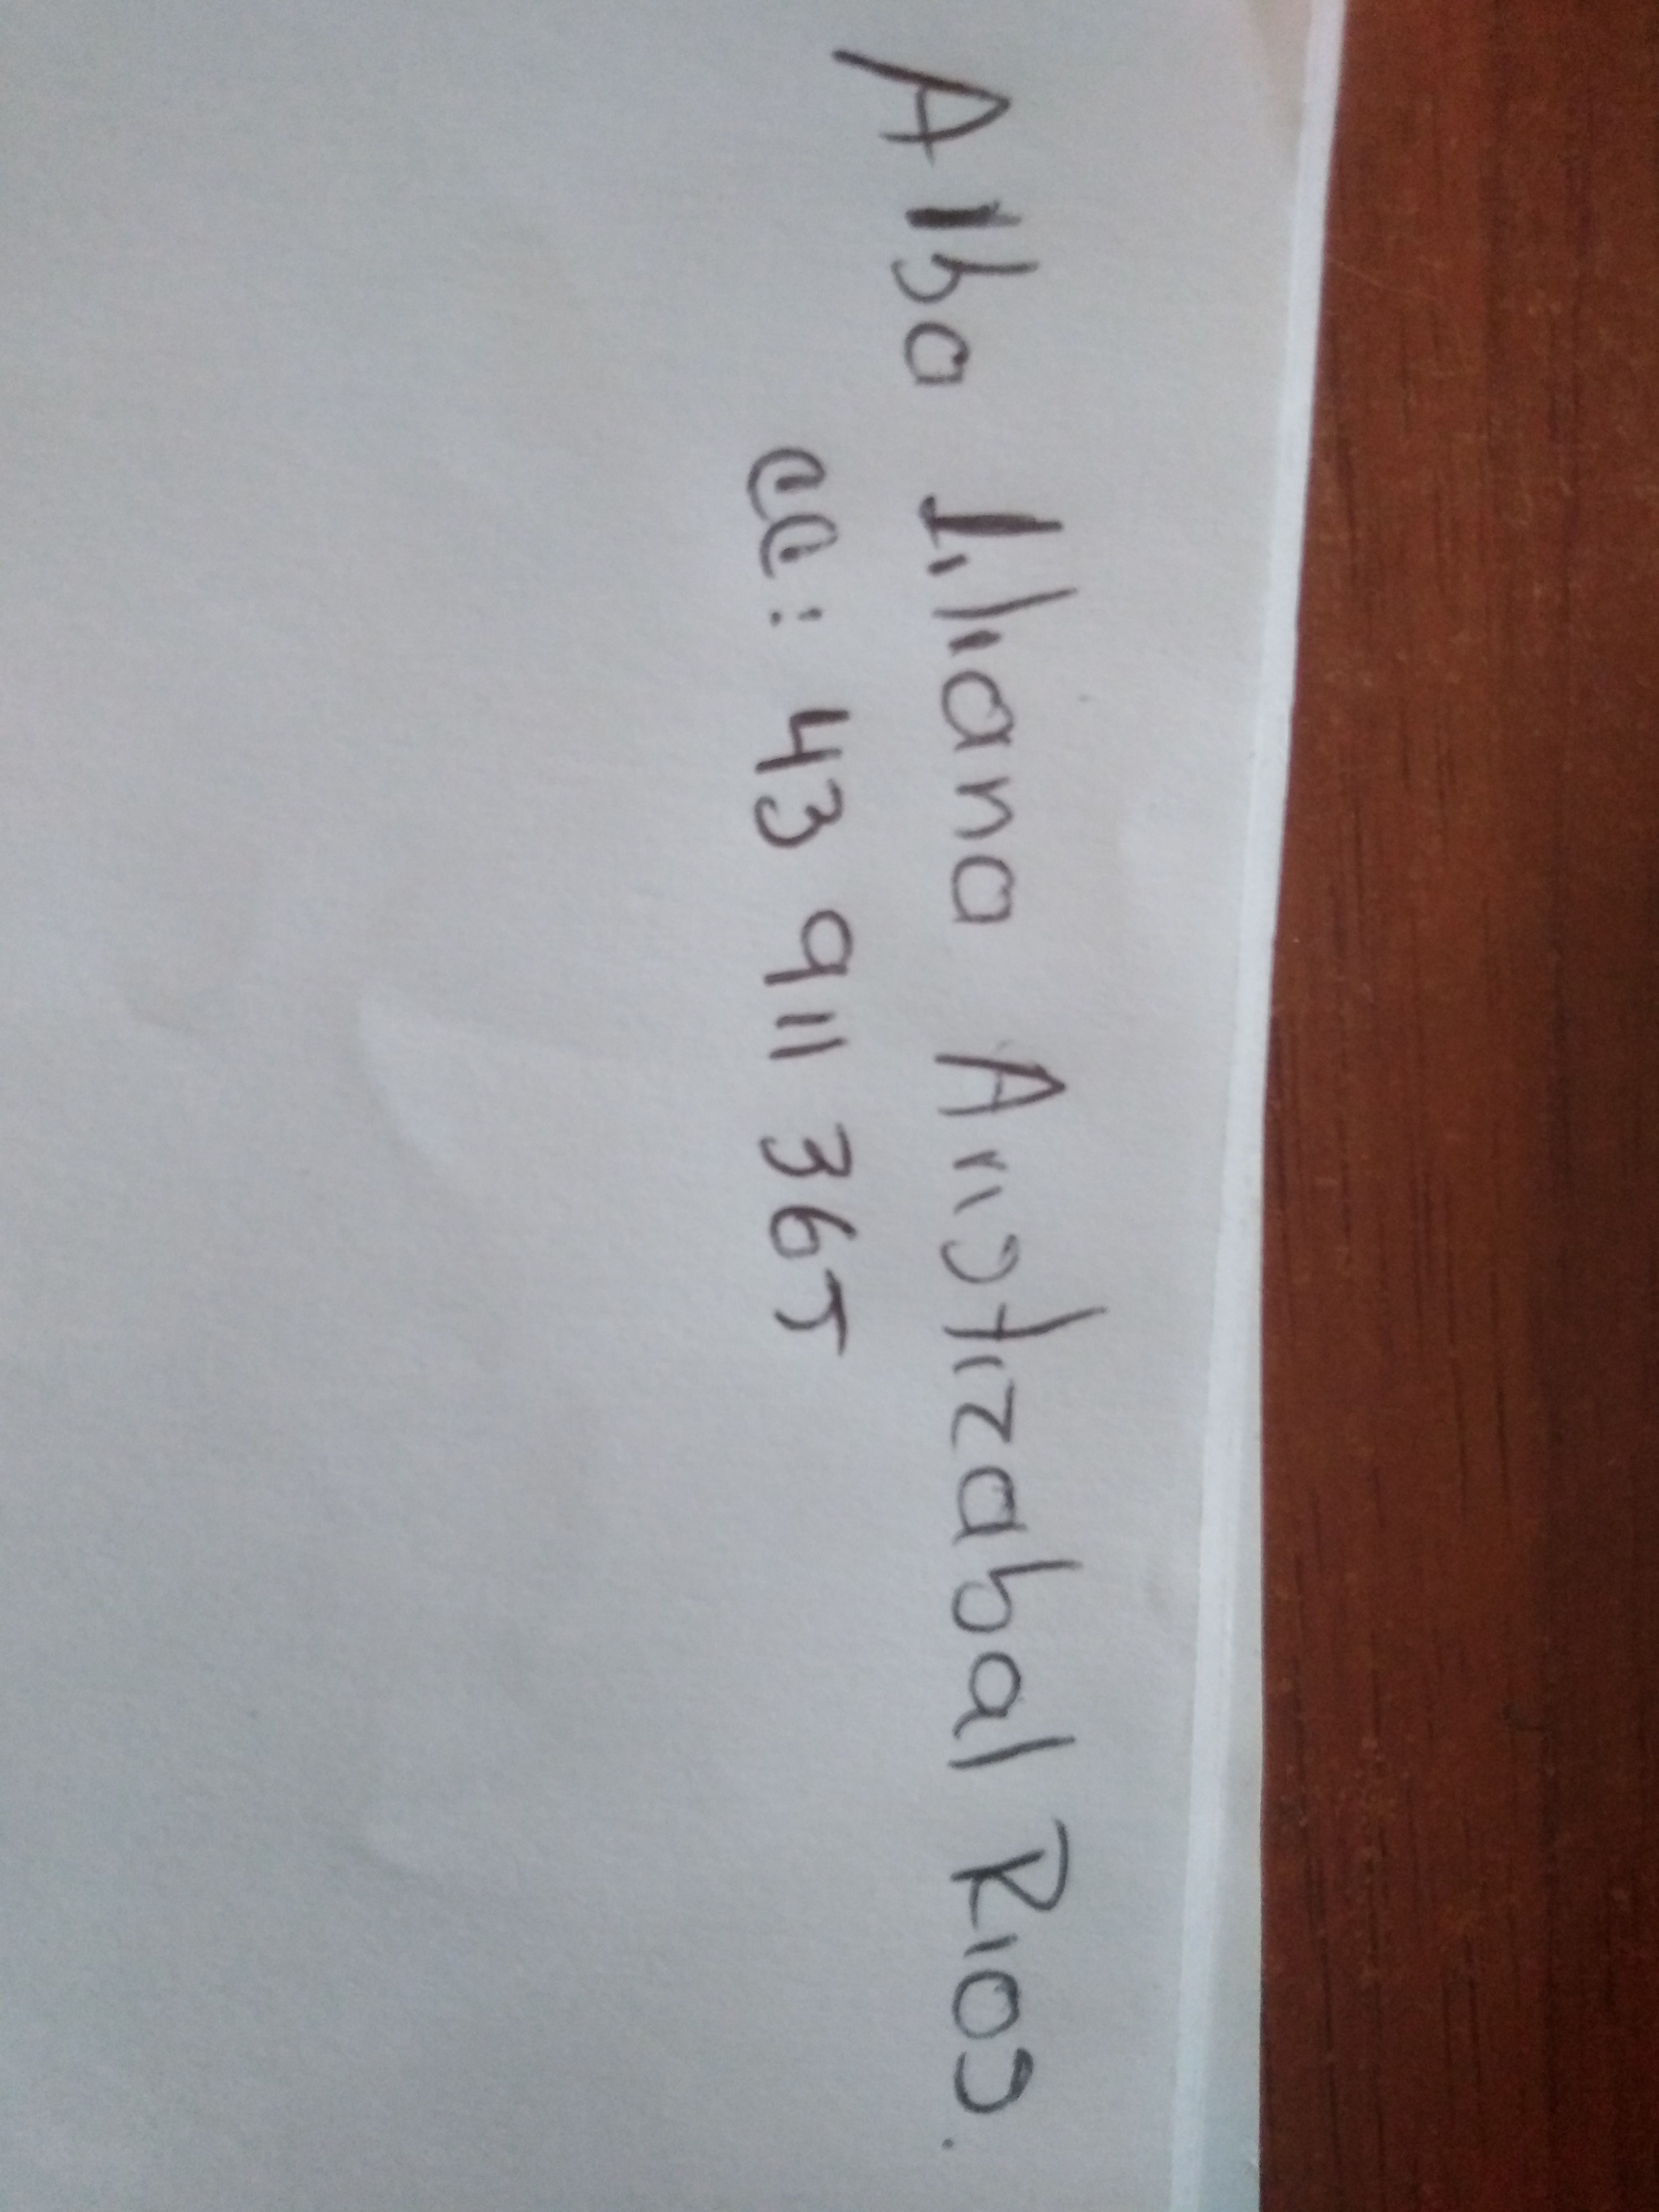 Alba Liliana Aristizabal Rios.
CC: 43 911 365